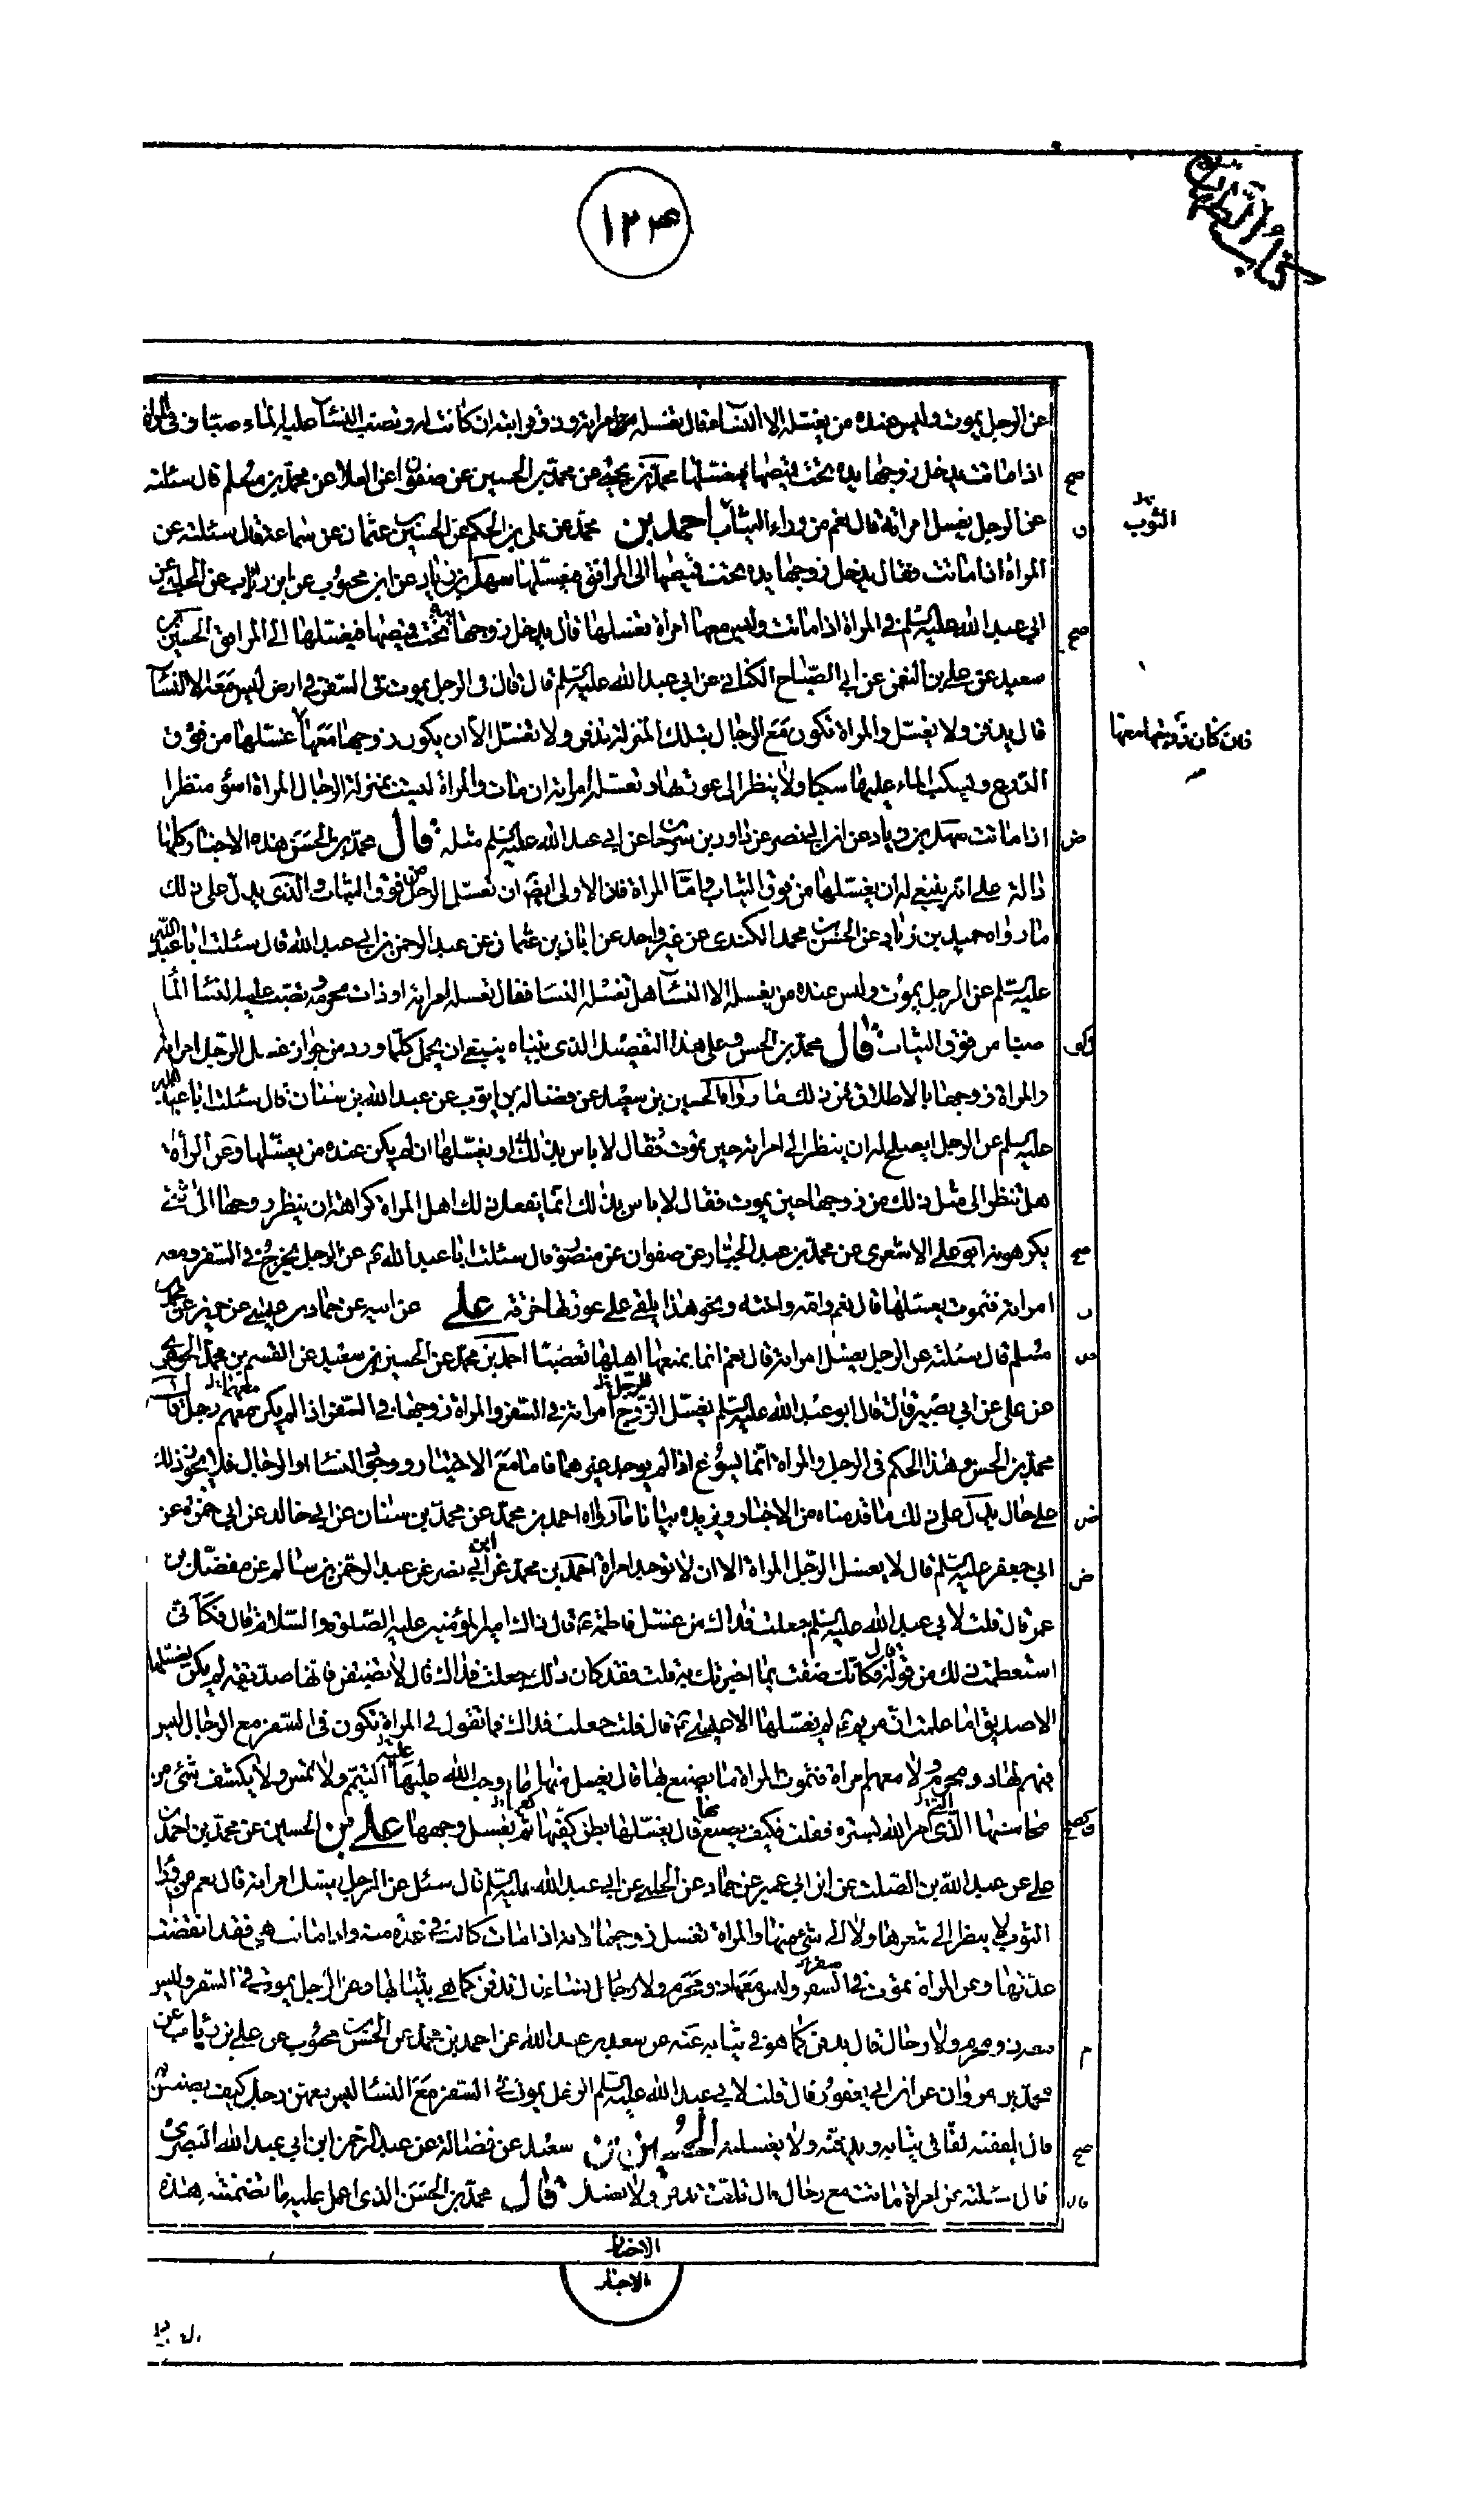 كتاب الطهارة
١٢٤
عن الرجل يموت وليس عنده من يغسله الا النساء فقال تغسله امراته او ذو قرابته ان كانت له وتصب النساء عليه الماء صبا وفي المراة
اذا ماتت يدخل زوجها يده تحت قميصها فيغسلها محمد بن يحيى عن محمد بن الحسين عن صفوان عن العلا عن محمد بن مسلم قال سئلته
عن الرجل يغسل امراته قال نعم من وراء الثياب احمد بن محمد عن على بن الحكم عن الحسين بن عثمان عن سماعة قال سئلته عن
المراة اذا ماتت فقال يدخل زوجها يده تحت قميصها الى المرافق فيغسلها سهل بن زياد عن ابن محبوب عن ابن رئاب عن الحلبي عن
ابي عبد الله عليه السلم في المراة اذا ماتت وليس معها امراة تغسلها قال يدخل زوجها يده تحت قميصها فيغسلها الى المرافق الحسين بن
سعيد عن على بن النعمن عن ابي الصباح الكناني عن ابي عبد الله عليه السلم قال قال في الرجل يموت في السفر في ارض ليس معه الا النساء
قال يدفن ولا يغسل والمراة تكون مع الرجال بتلك المنزلة تدفن ولا تغسل الا ان يكون زوجها معها غسلها من فوق
الدرع ويسكب الماء عليها سكبا ولا ينظر الى عورتها وتغسله امراته ان مات والمراة ليست بمنزلة الرجال المراة اسوء منظرا
اذا ماتت سهل بن زياد عن ابن ابي نصر عن داود بن سرحان عن ابي عبد الله عليه السلم مثله قال محمد بن الحسن هذه الاخبار كلها
دالة على انه ينبغي له ان يغسلها من فوق الثياب واما المراة فان الاولى ايضا ان تغسل الرجل من فوق الثياب والذي يدل على ذلك
ما رواه حميد بن زياد عن الحسن بن محمد الكندي عن غير واحد عن ابان بن عثمان عن عبد الرحمن بن ابي عبد الله قال سئلت ابا عبد الله
عليه السلم عن الرجل يموت وليس عنده من يغسله الا النساء هل تغسله النساء فقال تغسله امراته او ذات محرمه وتصب عليه النساء الماء
صبا من فوق الثياب قال محمد بن الحسن وعلى هذا التفصيل الذي بيناه ينبغي ان يحمل كلما ورد من جواز غسل الرجل امراته
والمراة زوجها بالاطلاق فمن ذلك ما رواه الحسين بن سعيد عن فضالة بن ايوب عن عبد الله بن سنان قال سئلت ابا عبد الله
عليه السلم عن الرجل ايصلح له ان ينظر الى امراته حين تموت فقال لا باس بذلك او يغسلها ان لم يكن عنده من يغسلها وعن المراة
هل تنظر الى مثل ذلك من زوجها حين يموت فقال لا باس بذلك انما يفعل ذلك اهل المراة كراهة ان ينظر زوجها الى شئ
يكرهونه ابو على الاشعري عن محمد بن عبد الجبار عن صفوان عن منصور قال سئلت ابا عبد الله ع عن الرجل يخرج في السفر ومعه
امراته فتموت يغسلها قال نعم وامه واخته ونحو هذا يلقى على عورتها خرقة على عن ابيه عن حماد عن حريز عن محمد بن
مسلم قال سئلته عن الرجل يغسل امراته قال نعم انما يمنعها اهلها تعصبا احمد بن محمد عن الحسين بن سعيد عن القسم بن محمد الجوهري
عن على عن ابي بصير قال قال ابو عبد الله عليه السلم يغسل الزوج امراته في السفر والمراة زوجها في السفر اذا لم يكن معهم رجل قال
محمد بن الحسن وهذا الحكم في الرجل والمراة انما يسوغ اذا لم يوجد غيرهما فاما مع الاختيار ووجود النساء او الرجال فلا يجوز ذلك
على حال يدل على ذلك ما قدمناه من الاخبار ويزيده بيانا ما رواه احمد بن محمد عن محمد بن سنان عن ابي خالد عن ابي حمزة عن
ابي جعفر عليه السلم قال لا يغسل الرجل المراة الا ان لا توجد امراة احمد بن محمد عن ابن ابي نصر عن عبد الرحمن بن سالم عن مفضل بن
عمر قال قلت لابي عبد الله عليه السلم جعلت فداك من غسل فاطمة ع قال ذاك امير المؤمنين عليه الصلوة والسلام قال فكانى
استعظمت ذلك من قوله قال فكانك ضقت بما اخبرتك به قلت فقد كان ذلك جعلت فداك قال لا تضيقن فانها صديقة لم يكن يغسلها
الا صديق اما علمت ان مريم ع لم يغسلها الا عيسى ع قال قلت جعلت فداك فما تقول في المراة تكون في السفر مع الرجال ليس
فيهم لها ذو محرم ولا معهم امراة فتموت المراة ما يصنع بها قال يغسل منها ما اوجب الله عليها التيمم ولا تمس ولا يكشف شئ من
محاسنها الذي امر الله بستره فقلت فكيف يصنع بها قال يغسلها بطن كفيها ثم يغسل وجهها على بن الحسين عن محمد بن احمد بن
على عن عبد الله بن الصلت عن ابن ابي عمير عن حماد عن الحلبي عن ابي عبد الله عليه السلم قال سئل عن الرجل يغسل امراته قال نعم من وراء
الثوب لا ينظر الى شعرها ولا الى شئ منها والمراة تغسل زوجها لانه اذا مات كانت في عدة منه واذا ماتت هي فقد انقضت
عدتها وعن المراة تموت في السفر وليس معها ذو محرم ولا رجال نساء قال تدفن كما هي بثيابها وعن الرجل يموت في السفر وليس
معه ذو محرم ولا رجال قال يدفن كما هو في ثيابه عنه عن سعد بن عبد الله عن احمد بن محمد عن الحسن بن محبوب عن على بن رئاب عن
محمد بن مروان عن ابن ابي يعفور قال قلت لابي عبد الله عليه السلم الرجل يموت في السفر مع النساء ليس معهن رجل كيف يصنعن
قال يلففنه لفا في ثيابه ويدفنه ولا يغسلنه الحسين بن سعيد عن فضالة عن عبد الرحمن ابن ابي عبد الله البصري
قال سئلته عن امراة ماتت مع رجال قال تلف تدفن ولا تغسل قال محمد بن الحسن الذي اعمل عليه ما تضمنته هذه
الاخبار
الاخبار
الثوب
فان كان زوجها معها